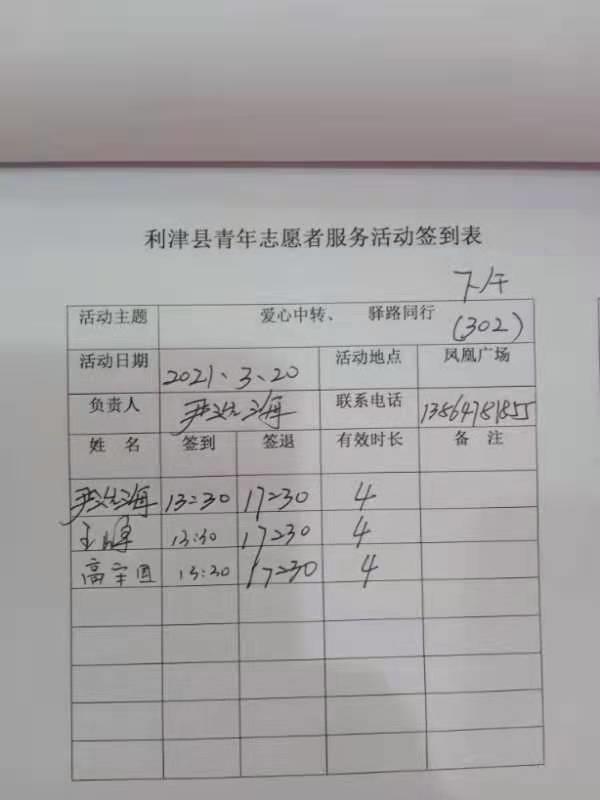 利津县青年志愿者服务活动签到表
下午
活动主题 爱心中转、 驿路同行 (302)
活动日期 2021、3、20 活动地点 凤凰广场
负责人 海 联系电话 13864781855
姓 名 签到 签退 有效时长 备 注
海 13:30 17:30 4
王 13:30 17:30 4
高 13:30 17:30 4